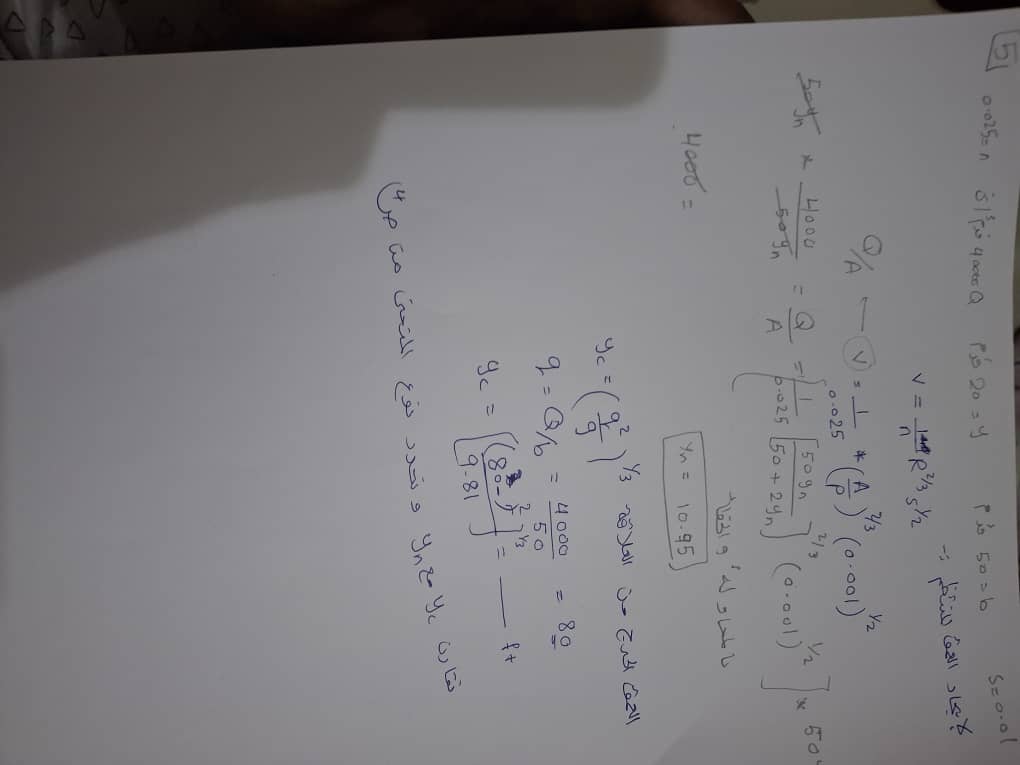 5 0.025=n Q 4000 قدم³/ث y=20 قدم b=50 قدم S=0.01
لايجاد العمق المنتظم :-
V = 1/n R^2/3 S^1/2
Q/A ← V = 1/0.025 * (A/P)^2/3 (0.001)^1/2
50yn * 4000/50yn = Q/A = [1/0.025 [50yn/50+2yn]^2/3 (0.001)^1/2] * 50
4000 =
بالمحاولة والخطأ
yn = 10.95
العمق الحرج من العلاقة yc = (q²/g)^1/3
q = Q/b = 4000/50 = 80
yc = [(80)²/9.81]^1/3 = ___ ft
نقارن yc مع yn و نحدد نوع المنحنى من ص4